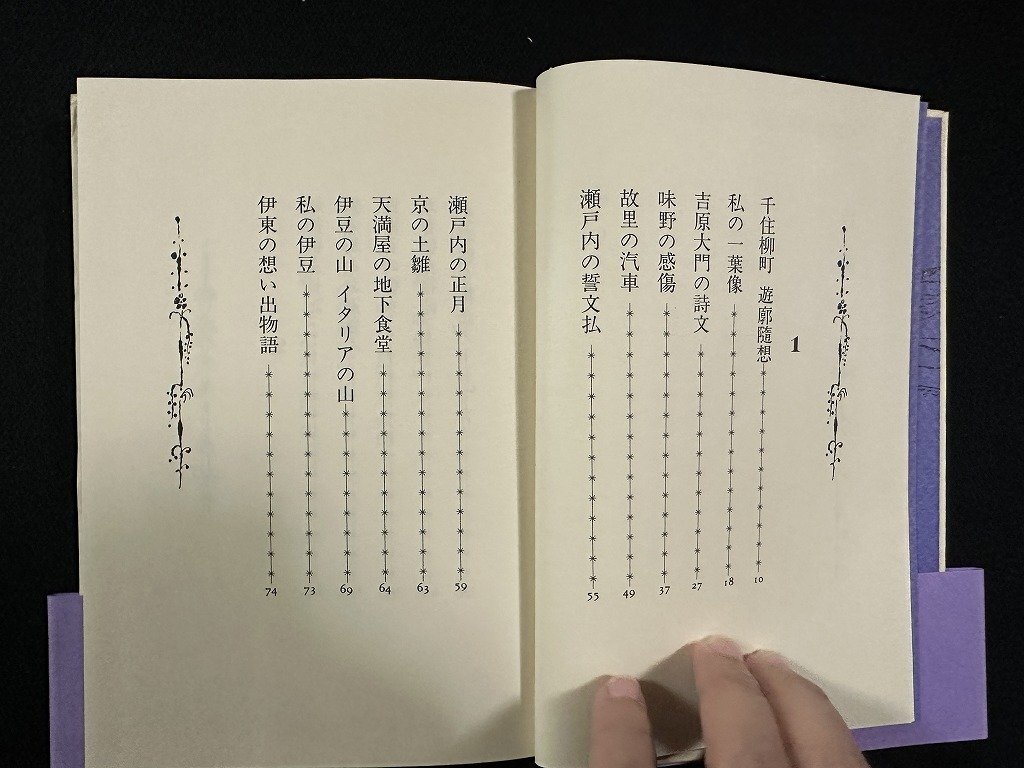 1
千住柳町 遊廓隨想 10
私の一葉像 18
吉原大門の詩文 27
味野の感傷 37
故里の汽車 49
瀬戸内の誓文払 55
瀬戸内の正月 59
京の土雛 63
天満屋の地下食堂 64
伊豆の山 イタリアの山 69
私の伊豆 73
伊東の想い出物語 74